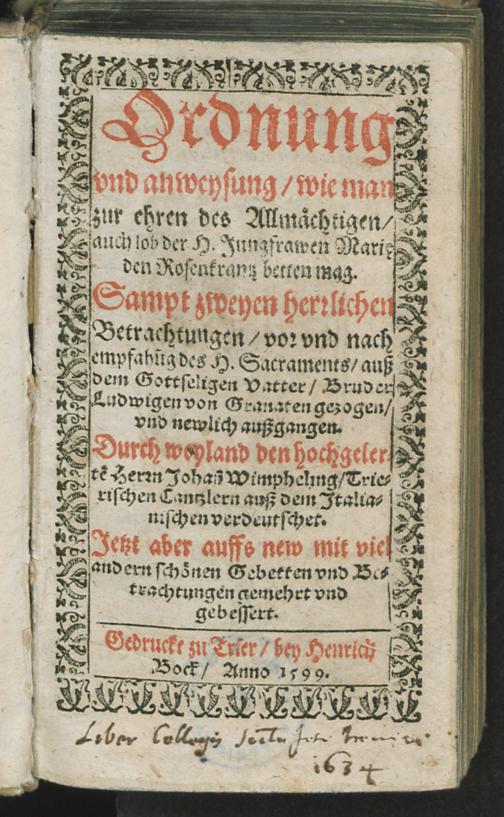 Ordnung
vnd anweysung / wie man
zur ehren des Allmächtigen /
auch lob der H. Jungfrawen Marię
den Rosenkrantz betten mag.
Sampt zweyen herrlichen
Betrachtungen / vor vnd nach
empfahūg des H. Sacraments / auß
dem Gottseligen Vatter / Bruder
Ludwigen von Granaten gezogen /
vnd newlich außgangen.
Durch weyland den hochgeler-
tē Herrn Johañ Wimpheling / Trie-
rischen Cantzlern auß dem Italia-
nischen verdeutschet.
Jetzt aber auffs new mit viel
andern schönen Gebetten vnd Be-
trachtungen gemehrt vnd
gebessert.
Gedruckt zu Trier / bey Henricū
Bock / Anno 1599.
Liber Collegij Sctis Jesu
1634